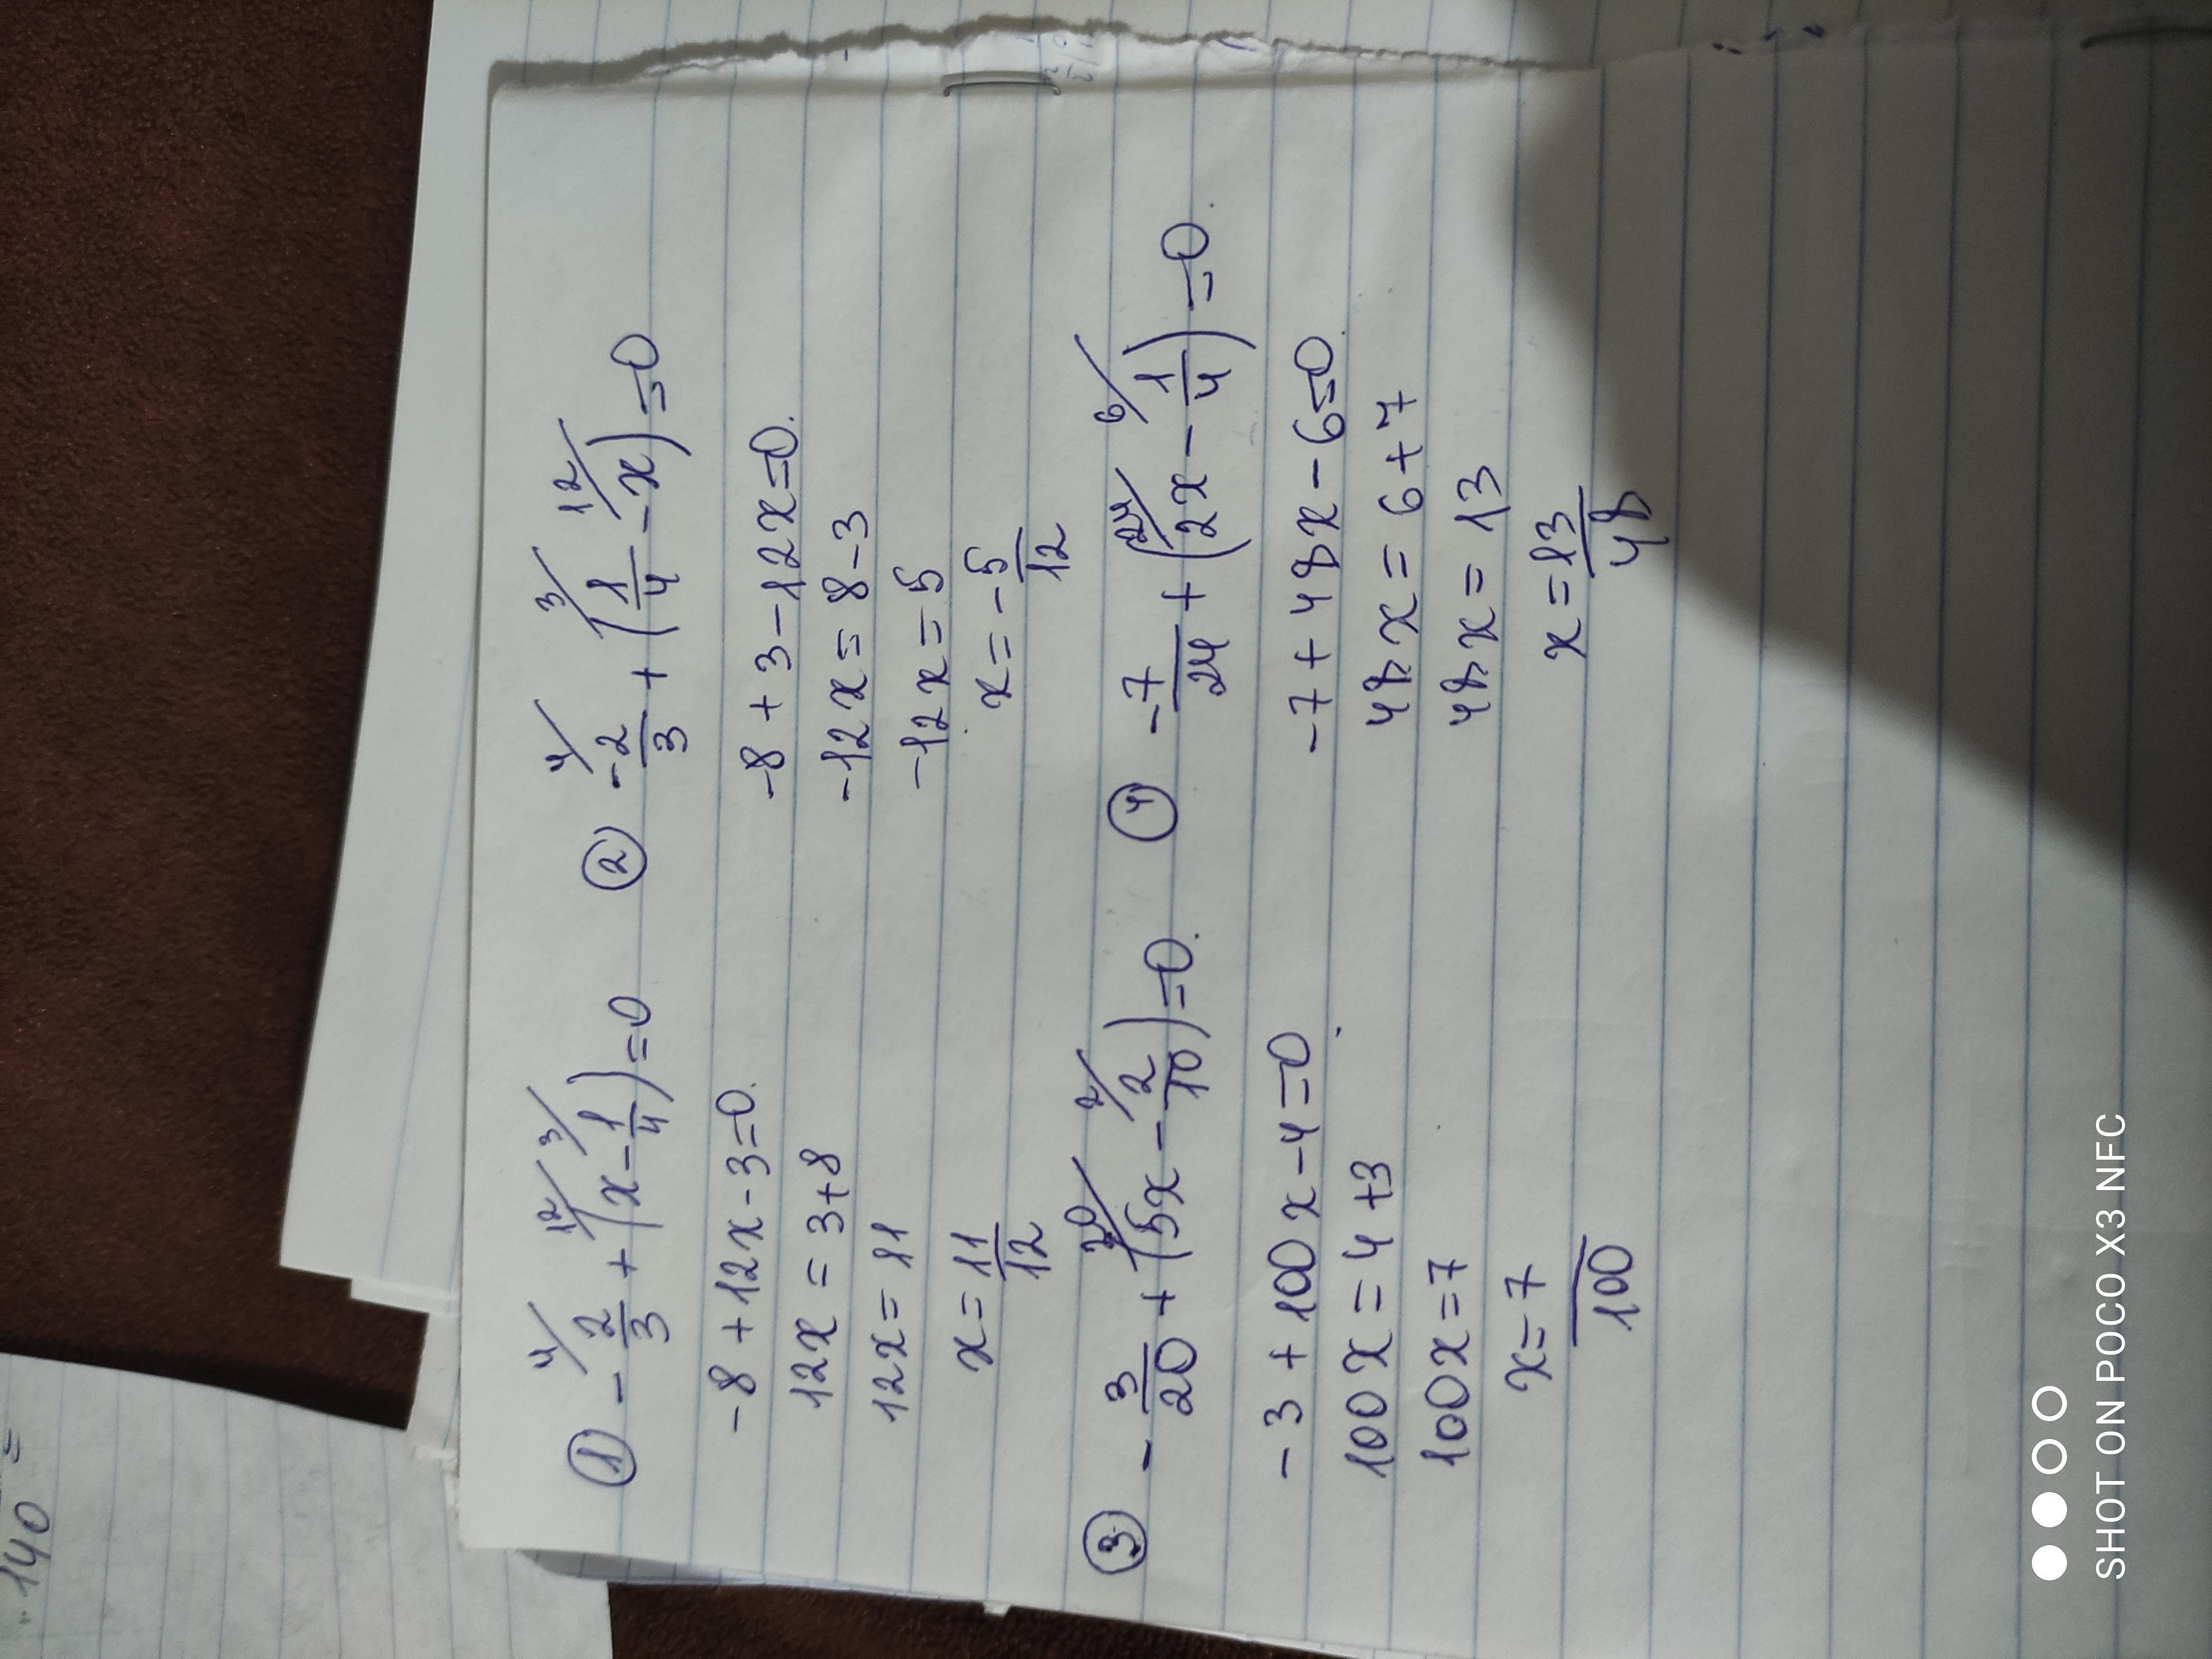 ① - 2/3 + (x - 1/4) = 0
4/ 12/ 3/
-8 + 12x - 3 = 0.
12x = 3 + 8
12x = 11
x = 11/12
② -2/3 + (1/4 - x) = 0
4/ 3/ 12/
-8 + 3 - 12x = 0.
-12x = 8 - 3
-12x = 5
x = -5/12
③ - 3/20 + (5x - 2/10) = 0.
20/ 2/
-3 + 100x - 4 = 0
100x = 4 + 3
100x = 7
x = 7/100
④ -7/24 + (2x - 1/4) = 0.
24/ 6/
-7 + 48x - 6 = 0.
48x = 6 + 7
48x = 13
x = 13/48
140 =
SHOT ON POCO X3 NFC